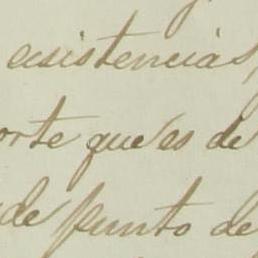 asistencias,
orte que es de
de punto de